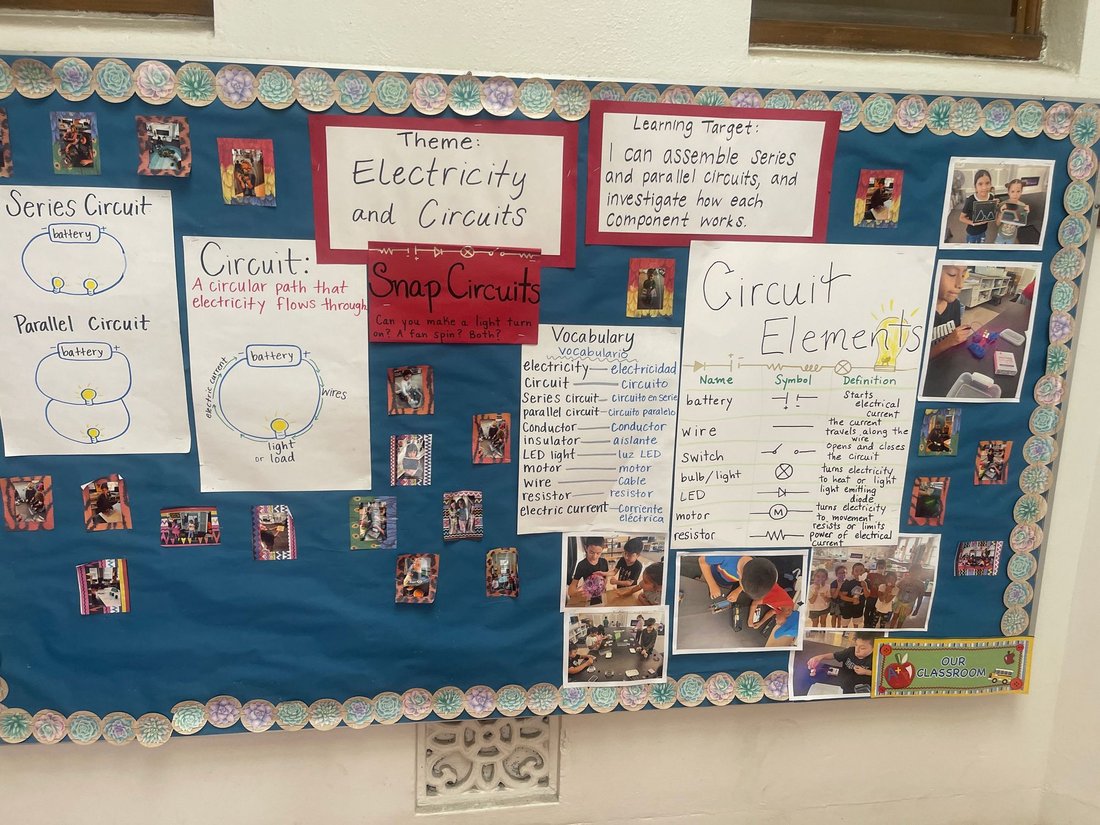 Series Circuit
battery
Parallel Circuit
battery
Circuit:
A circular path that
electricity flows through
- battery +
electric current
wires
light
or load
Theme:
Electricity
and Circuits
Snap Circuits
Can you make a light turn
on? A fan spin? Both?
Learning Target:
I can assemble series
and parallel circuits, and
investigate how each
component works.
Vocabulary
Vocabulario
electricity — electricidad
Circuit — Circuito
Series circuit — Circuito en Serie
parallel circuit — Circuito paralelo
Conductor — Conductor
insulator — aislante
LED light — luz LED
motor — motor
wire — Cable
resistor — resistor
electric current — Corriente
eléctrica
Circuit
Elements
Name Symbol Definition
battery Starts
electrical
current
wire the current
travels along the
wire
switch opens and closes
the circuit
bulb/light turns electricity
to heat or light
LED light emitting
diode
motor M turns electricity
to movement
resistor resists or limits
power of electrical
current
A+
OUR
CLASSROOM